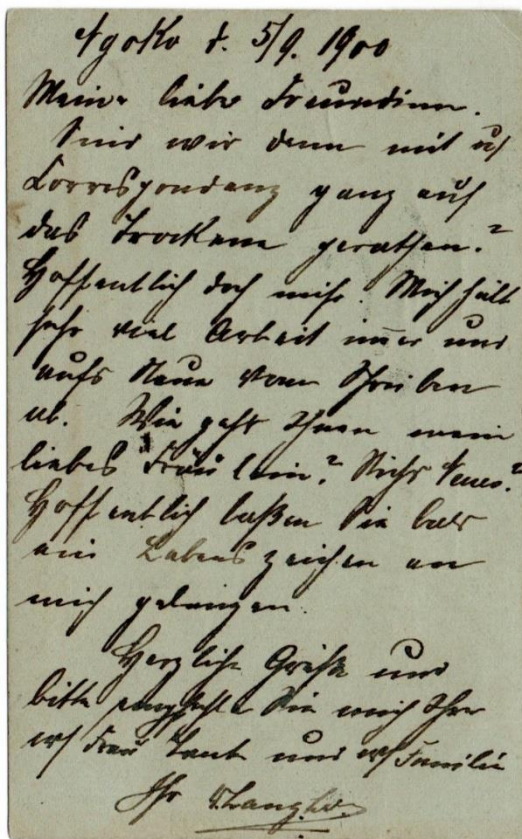 Ngoko d. 5/9. 1900
Meine liebe Freundinn.
Sind wir denn mit
Correspondenz ganz auf
das Trockene gerathen?
Hoffentlich doch nicht. Mich hält
sehr viel Arbeit immer und
aufs Neue vom Schreiben
ab. Wie geht Ihnen mein
liebes Fräulein? Nichts Neues?
Hoffentlich laßen Sie bald
ein Lebenszeichen an
mich gelangen.
Herzliche Grüße und
bitte empfehle Sie mich Ihrer
Frau Tante und Familie
Ihr